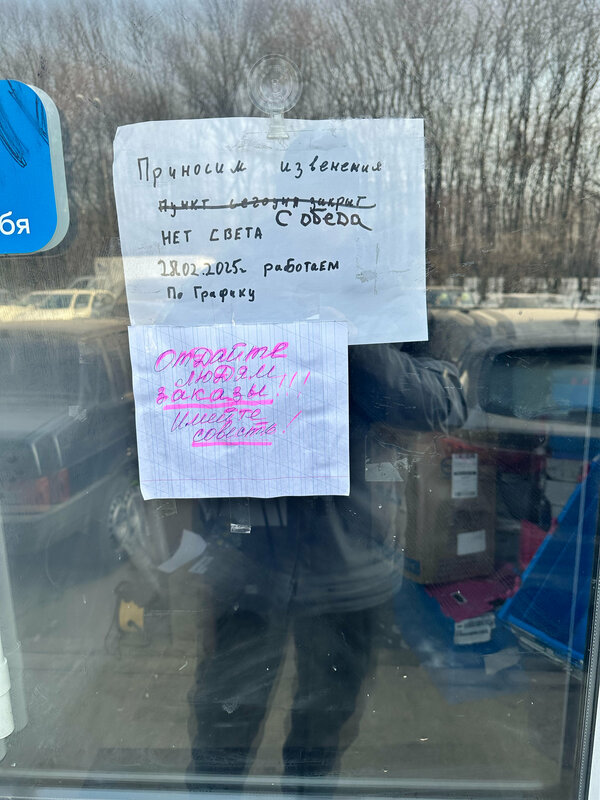 бя
Приносим извенения
пункт сегодня закрит
С обеда
НЕТ СВЕТА
28.02.2025г работаем
По Графику
Отдайте
людям
заказы!!!
Имейте
совесть!